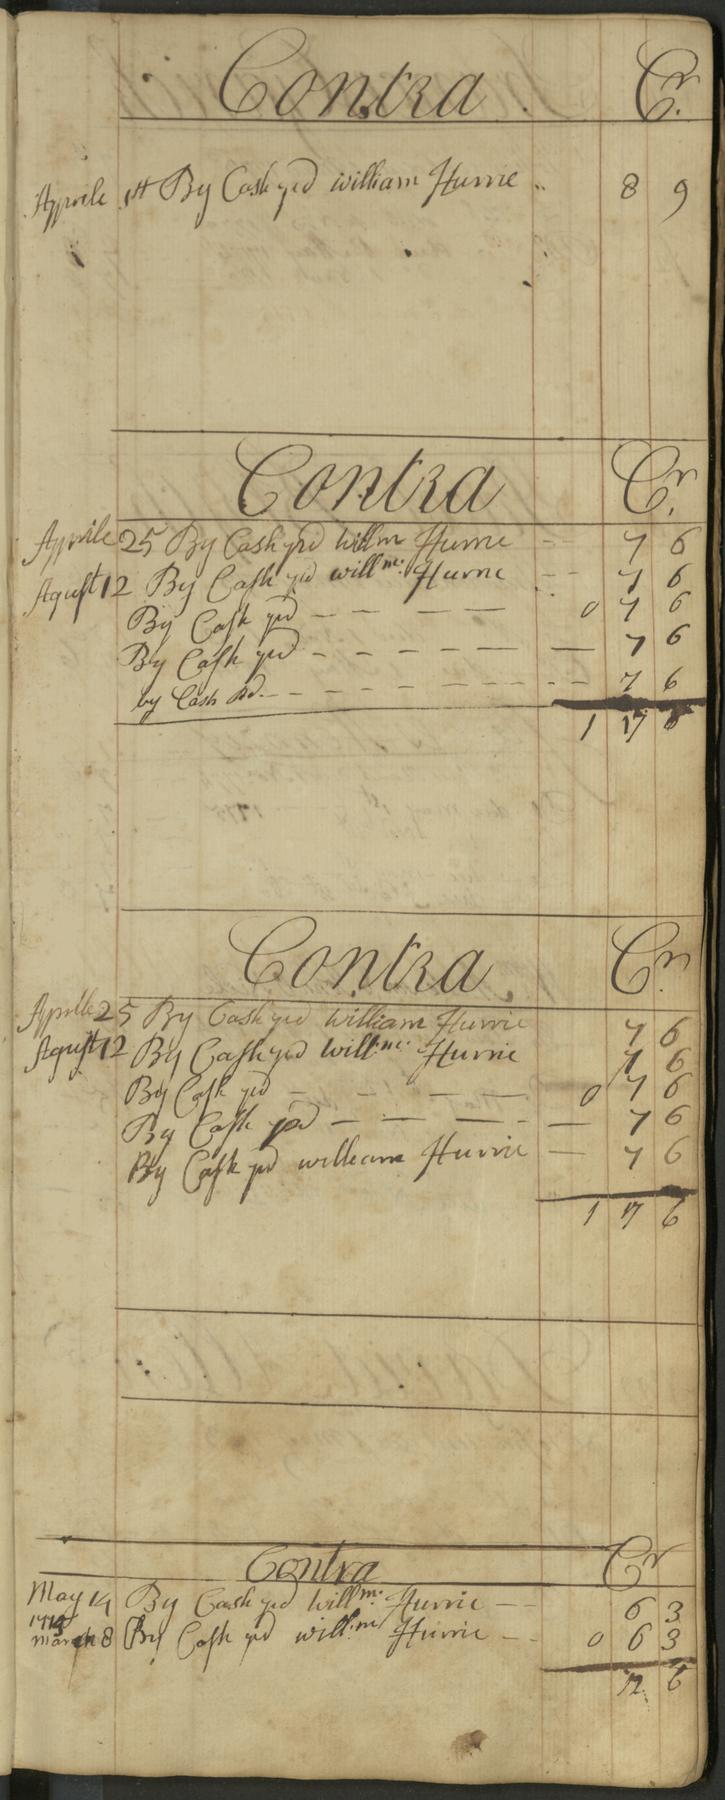 Contra Cr.
Aprile 1st By Cash pd william Hurrie 8 9
Contra Cr.
Aprile 25 By Cash pd willm Hurrie - - 7 6
Agust 12 By Cash pd willm: Hurrie - - 7 6
By Cash pd - - - - - 0 7 6
By Cash pd - - - - - 7 6
by Cash pd - - - - - - - 7 6
1 17 6
Contra Cr.
Aprile 25 By Cash pd william Hurrie 7 6
Agust 12 By Cash pd willm: Hurrie 7 6
By Cash pd - - - - 0 7 6
By Cash pd - - - - - 7 6
By Cash pd william Hurrie - 7 6
1 17 6
Contra Cr
May 14 By Cash pd willm: Hurrie - - 6 3
March 8 By Cash pd willm Hurrie - - 0 6 3
12 6